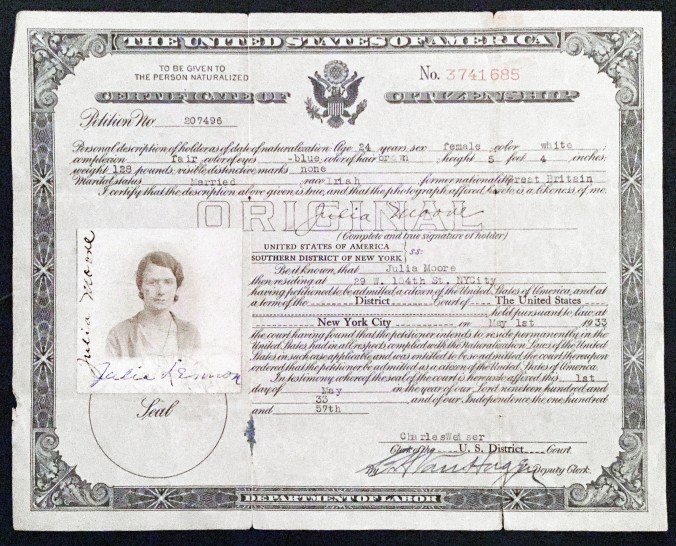 THE UNITED STATES OF AMERICA
TO BE GIVEN TO
THE PERSON NATURALIZED
No. 3741685
CERTIFICATE OF CITIZENSHIP
Petition No. 207496
Personal description of holder as of date of naturalization: Age 24 years; sex female; color white;
complexion fair; color of eyes blue; color of hair brown; height 5 feet 4 inches;
weight 128 pounds; visible distinctive marks none
Marital status Married race Irish former nationality Great Britain
I certify that the description above given is true, and that the photograph affixed hereto is a likeness of me.
ORIGINAL
Julia Moore
(Complete and true signature of holder)
UNITED STATES OF AMERICA
SOUTHERN DISTRICT OF NEW YORK
ss:
Be it known, that Julia Moore
then residing at W. 184th St. NYCity
having petitioned to be admitted a citizen of the United States of America, and at
a term of the District Court of The United States
held pursuant to law at
New York City on May 1st 1933
the court having found that the petitioner intends to reside permanently in the
United States, had in all respects complied with the Naturalization Laws of the United
States in such case applicable and was entitled to be so admitted, the court thereupon
ordered that the petitioner be admitted as a citizen of the United States of America.
In testimony whereof the seal of the court is hereunto affixed this 1st
day of May in the year of our Lord nineteen hundred and
33 and of our Independence the one hundred
and 57th
Julia Moore
Julia Lennon
Seal
Charles Weiser
Clerk of the U. S. District Court.
By Deputy Clerk.
DEPARTMENT OF LABOR